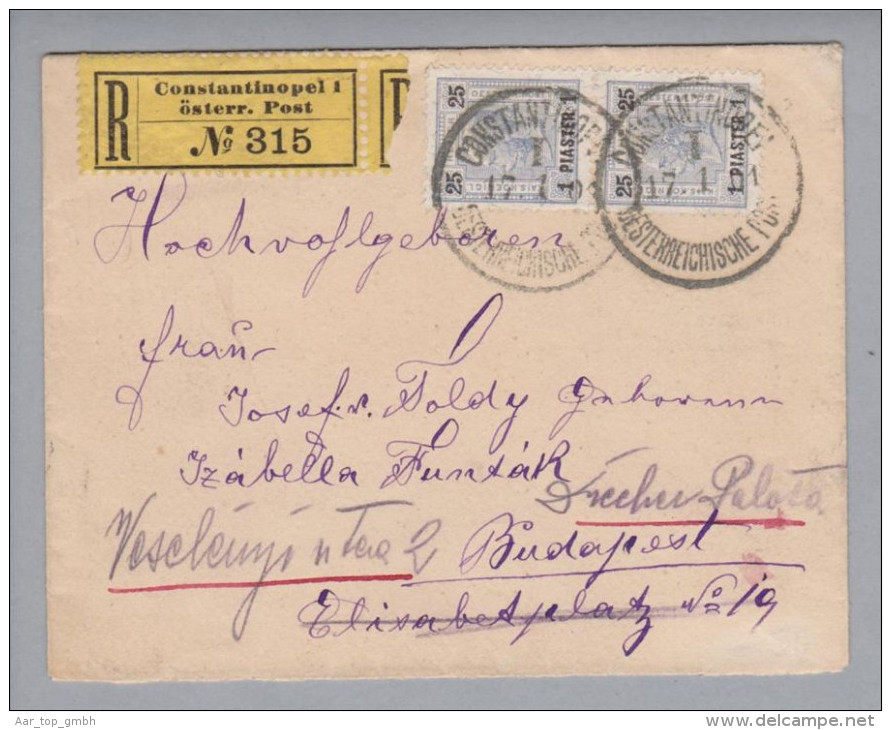 R
Constantinopel 1
österr. Post
№ 315
25 25 1 PIASTER 1
25 25 1 PIASTER 1
CONSTANTINOPEL I
17 1 01
OESTERREICHISCHE POST
CONSTANTINOPEL I
17 1 01
OESTERREICHISCHE POST
Hochvohlgeboren
Frau
Josef v. Foldy Geborenne
Izábella Funták
Palota
Veselényi utca 2 Budapest
Elisabetplatz No 19
Aar_top_gmbh
www.delcampe.net